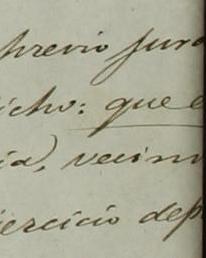 previo jura
icho: que e
ia, vecin
jercicio de